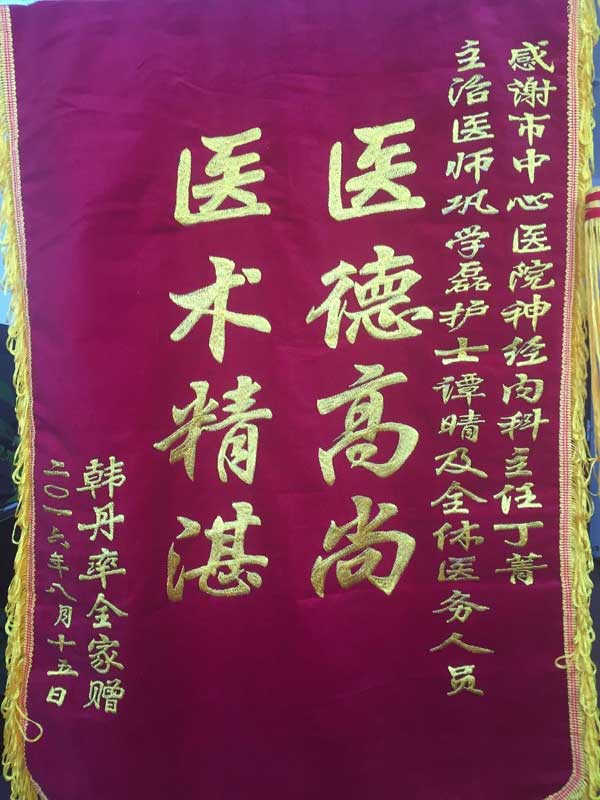 感谢市中心医院神经内科主任丁菁
主治医师巩学磊护士谭晴及全体医务人员
医德高尚
医术精湛
韩丹率全家赠
二〇一六年八月十五日